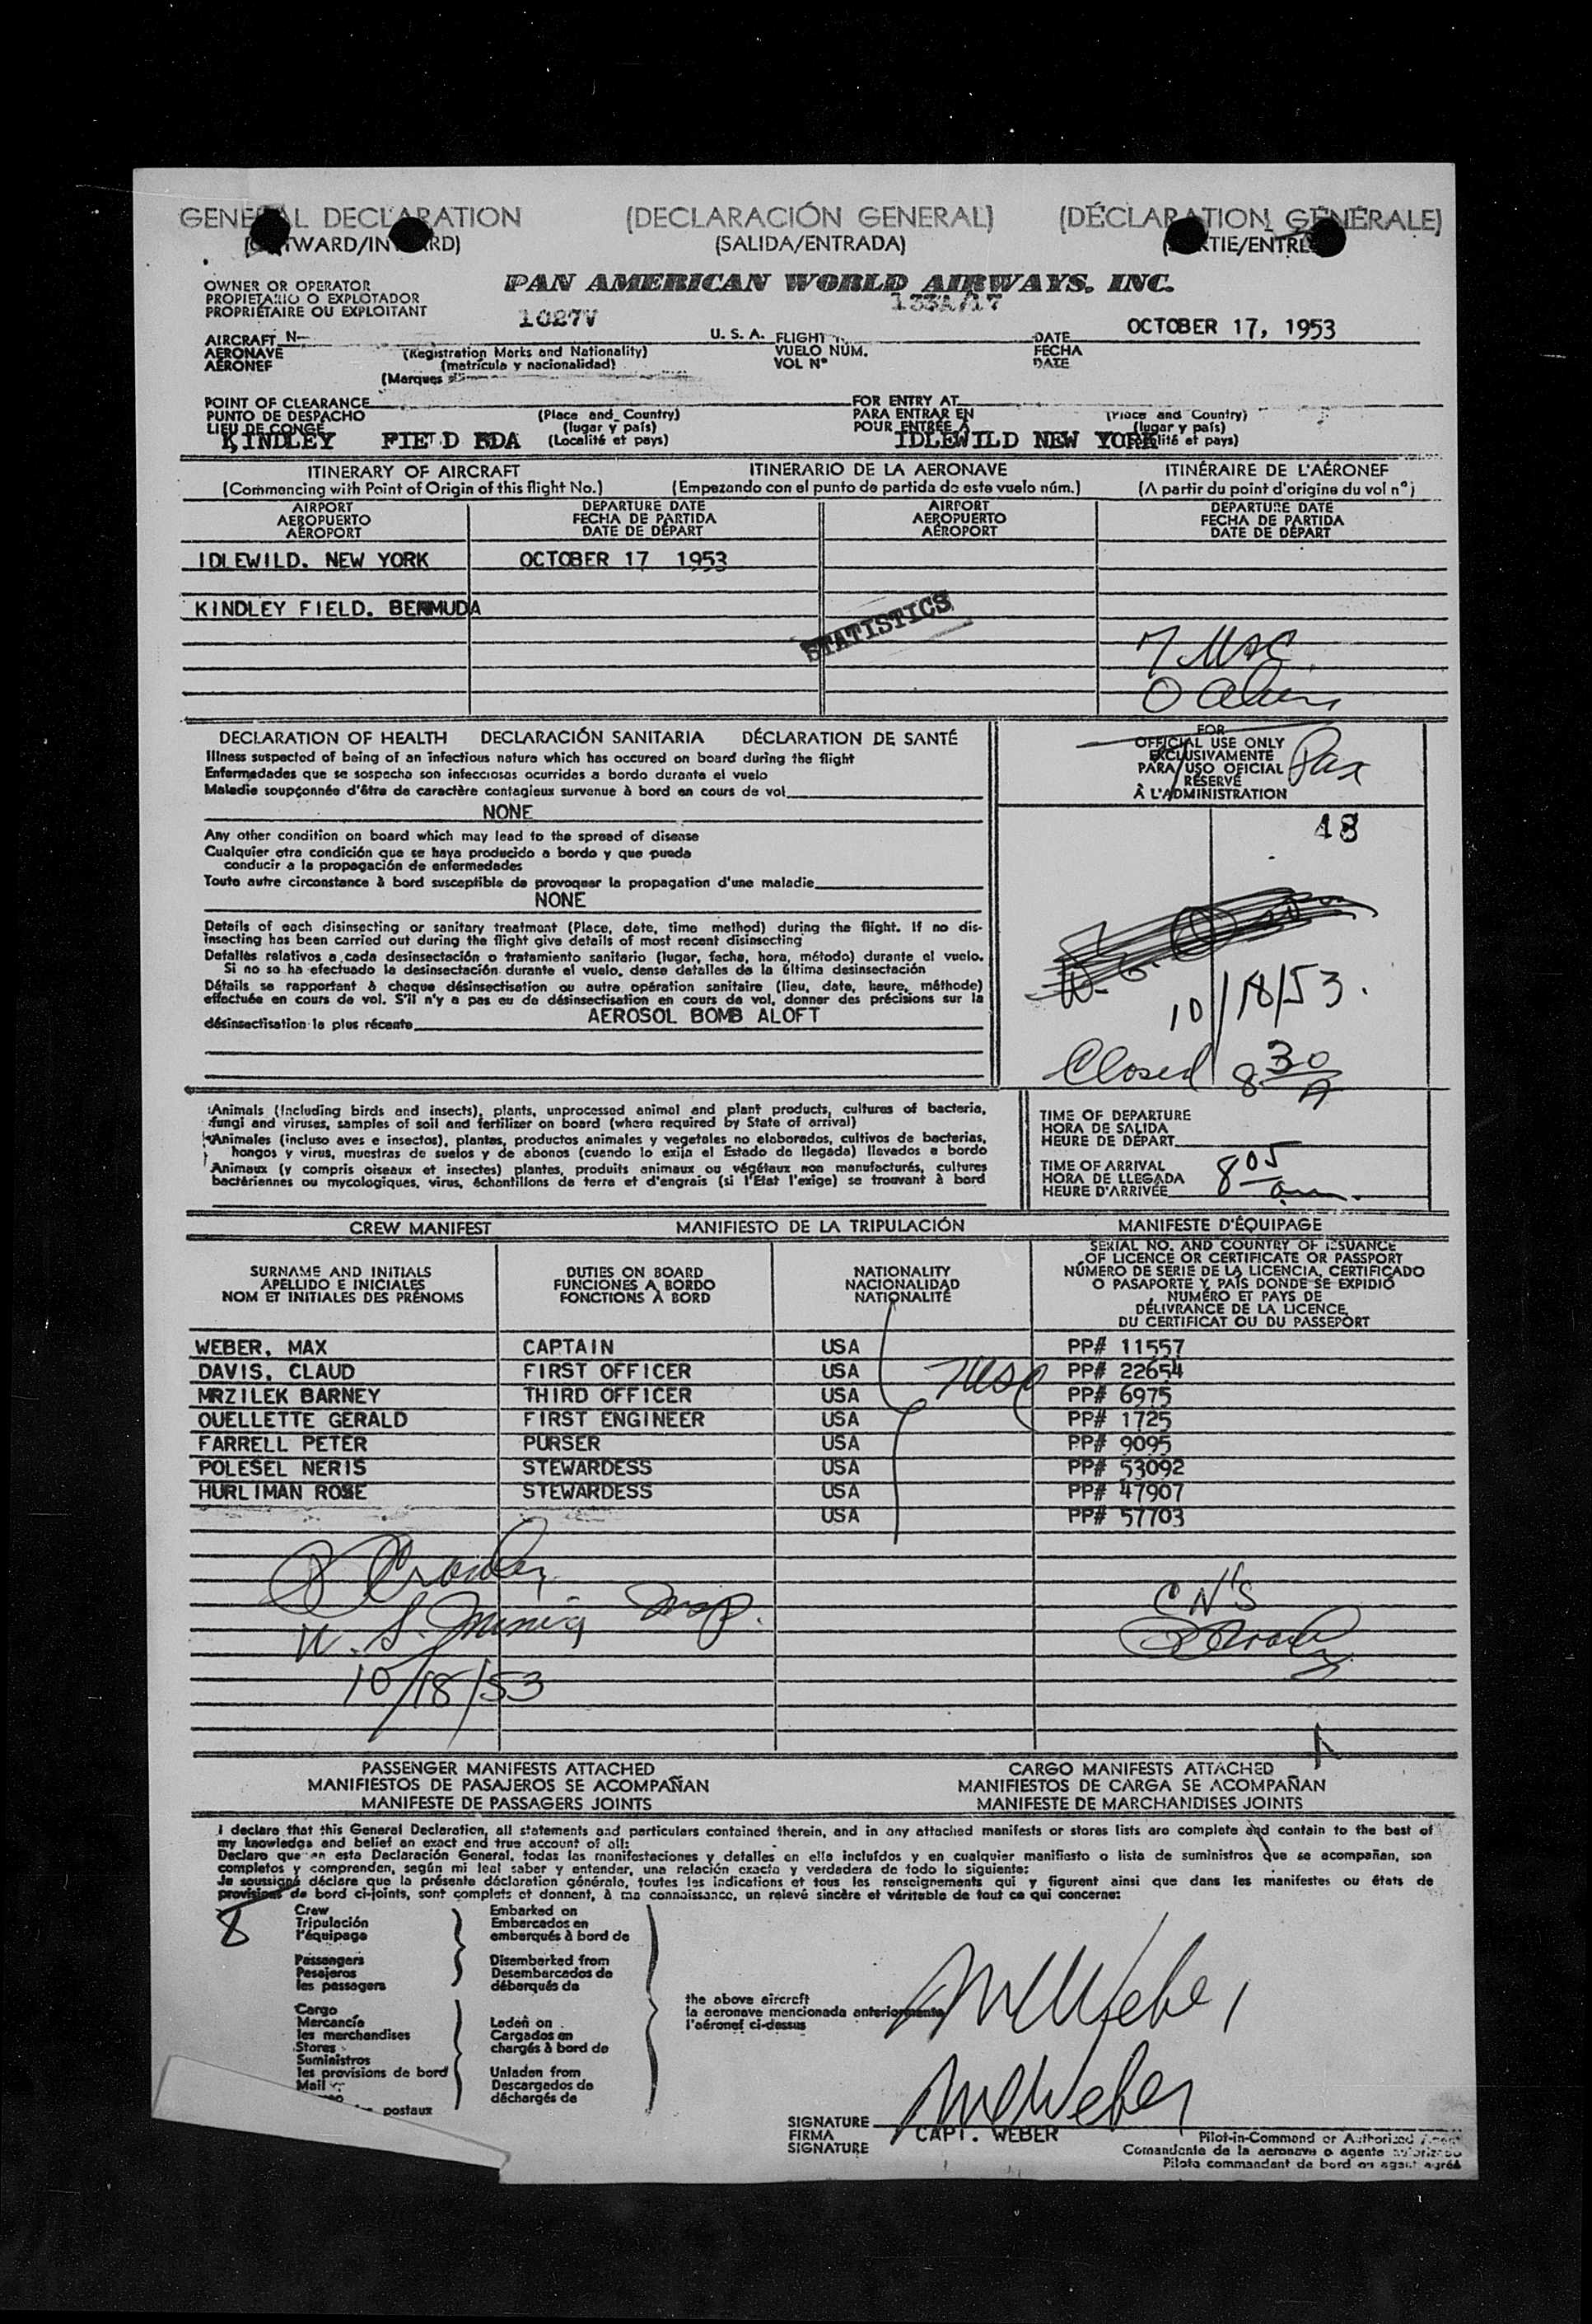 GENERAL DECLARATION (DECLARACIÓN GENERAL) (DÉCLARATION GÉNÉRALE)
(OUTWARD/INWARD) (SALIDA/ENTRADA) (SORTIE/ENTRÉE)
OWNER OR OPERATOR
PROPIETARIO O EXPLOTADOR
PROPRIÉTAIRE OU EXPLOITANT
PAN AMERICAN WORLD AIRWAYS, INC.
1027V 133A/17 OCTOBER 17, 1953
AIRCRAFT N- U. S. A. FLIGHT DATE
AERONAVE (Registration Marks and Nationality) VUELO NÚM. FECHA
AÉRONEF (matrícula y nacionalidad) VOL Nº DATE
(Marques
POINT OF CLEARANCE FOR ENTRY AT
PUNTO DE DESPACHO (Place and Country) PARA ENTRAR EN (Place and Country)
LIEU DE CONGÉ (lugar y país) POUR ENTRÉE À (lugar y país)
KINDLEY FIELD BDA (Localité et pays) IDLEWILD NEW YORK (Localité et pays)
ITINERARY OF AIRCRAFT ITINERARIO DE LA AERONAVE ITINÉRAIRE DE L'AÉRONEF
(Commencing with Point of Origin of this flight No.) (Empezando con el punto de partida de este vuelo núm.) (A partir du point d'origine du vol nº)
AIRPORT DEPARTURE DATE AIRPORT DEPARTURE DATE
AEROPUERTO FECHA DE PARTIDA AEROPUERTO FECHA DE PARTIDA
AÉROPORT DATE DE DÉPART AÉROPORT DATE DE DÉPART
IDLEWILD. NEW YORK OCTOBER 17 1953
KINDLEY FIELD. BERMUDA
STATISTICS
DECLARATION OF HEALTH DECLARACIÓN SANITARIA DÉCLARATION DE SANTÉ
Illness suspected of being of an infectious nature which has occured on board during the flight
Enfermedades que se sospecha son infecciosas ocurridas a bordo durante el vuelo
Maladie soupçonnée d'être de caractère contagieux survenue à bord en cours de vol
NONE
Any other condition on board which may lead to the spread of disease
Cualquier otra condición que se haya producido a bordo y que pueda
conducir a la propagación de enfermedades
Toute autre circonstance à bord susceptible de provoquer la propagation d'une maladie
NONE
Details of each disinsecting or sanitary treatment (Place, date, time method) during the flight. If no dis-
insecting has been carried out during the flight give details of most recent disinsecting
Detalles relativos a cada desinsectación o tratamiento sanitario (lugar, fecha, hora, método) durante el vuelo.
Si no se ha efectuado la desinsectación durante el vuelo, dense detalles de la última desinsectación
Détails se rapportant à chaque désinsectisation ou autre opération sanitaire (lieu, date, heure, méthode)
effectuée en cours de vol. S'il n'y a pas eu de désinsectisation en cours de vol, donner des précisions sur la
désinsectisation la plus récente AEROSOL BOMB ALOFT
FOR
OFFICIAL USE ONLY
EXCLUSIVAMENTE
PARA USO OFICIAL
RÉSERVÉ
À L'ADMINISTRATION
Pax
18
10/18/53.
Closed 8 30 A
Animals (Including birds and insects), plants, unprocessed animal and plant products, cultures of bacteria,
fungi and viruses, samples of soil and fertilizer on board (where required by State of arrival)
Animales (incluso aves e insectos), plantas, productos animales y vegetales no elaborados, cultivos de bacterias,
hongos y virus, muestras de suelos y de abonos (cuando lo exija el Estado de llegada) llevados a bordo
Animaux (y compris oiseaux et insectes) plantes, produits animaux ou végétaux non manufacturés, cultures
bactériennes ou mycologiques, virus, échantillons de terre et d'engrais (si l'Etat l'exige) se trouvant à bord
TIME OF DEPARTURE
HORA DE SALIDA
HEURE DE DÉPART
TIME OF ARRIVAL
HORA DE LLEGADA
HEURE D'ARRIVÉE 8 05 am.
CREW MANIFEST MANIFIESTO DE LA TRIPULACIÓN MANIFESTE D'ÉQUIPAGE
SURNAME AND INITIALS
APELLIDO E INICIALES
NOM ET INITIALES DES PRÉNOMS
DUTIES ON BOARD
FUNCIONES A BORDO
FONCTIONS À BORD
NATIONALITY
NACIONALIDAD
NATIONALITÉ
SERIAL NO. AND COUNTRY OF ISSUANCE
OF LICENCE OR CERTIFICATE OR PASSPORT
NÚMERO DE SERIE DE LA LICENCIA, CERTIFICADO
O PASAPORTE Y PAÍS DONDE SE EXPIDIÓ
NUMÉRO ET PAYS DE
DÉLIVRANCE DE LA LICENCE,
DU CERTIFICAT OU DU PASSEPORT
WEBER, MAX CAPTAIN USA PP# 11557
DAVIS, CLAUD FIRST OFFICER USA PP# 22654
MRZILEK BARNEY THIRD OFFICER USA PP# 6975
OUELLETTE GERALD FIRST ENGINEER USA PP# 1725
FARRELL PETER PURSER USA PP# 9095
POLESEL NERIS STEWARDESS USA PP# 53092
HURLIMAN ROSE STEWARDESS USA PP# 47907
USA PP# 57703
10/18/53
PASSENGER MANIFESTS ATTACHED CARGO MANIFESTS ATTACHED
MANIFIESTOS DE PASAJEROS SE ACOMPAÑAN MANIFIESTOS DE CARGA SE ACOMPAÑAN
MANIFESTE DE PASSAGERS JOINTS MANIFESTE DE MARCHANDISES JOINTS
I declare that this General Declaration, all statements and particulars contained therein, and in any attached manifests or stores lists are complete and contain to the best of
my knowledge and belief an exact and true account of all:
Declaro que en esta Declaración General, todas las manifestaciones y detalles en ella incluídos y en cualquier manifiesto o lista de suministros que se acompañan, son
completos y comprenden, según mi leal saber y entender, una relación exacta y verdadera de todo lo siguiente:
Je soussigné déclare que la présente déclaration générale, toutes les indications et tous les renseignements qui y figurent ainsi que dans les manifestes ou états de
provisions de bord ci-joints, sont complets et donnent, à ma connaissance, un relevé sincère et véritable de tout ce qui concerne:
8
Crew Embarked on
Tripulación Embarcados en
l'équipage embarqués à bord de
Passengers Disembarked from
Pasajeros Desembarcados de
les passagers débarqués de
the above aircraft
la aeronave mencionada anteriormente
l'aéronef ci-dessus
Cargo
Mercancía Laden on
les merchandises Cargados en
Stores chargés à bord de
Suministros
les provisions de bord Unladen from
Mail Descargados de
postaux déchargés de
MWeber
MWeber
SIGNATURE
FIRMA CAPT. WEBER Pilot-in-Command or Authorized Agent
SIGNATURE Comandante de la aeronave o agente autorizado
Pilote commandant de bord ou agent agréé